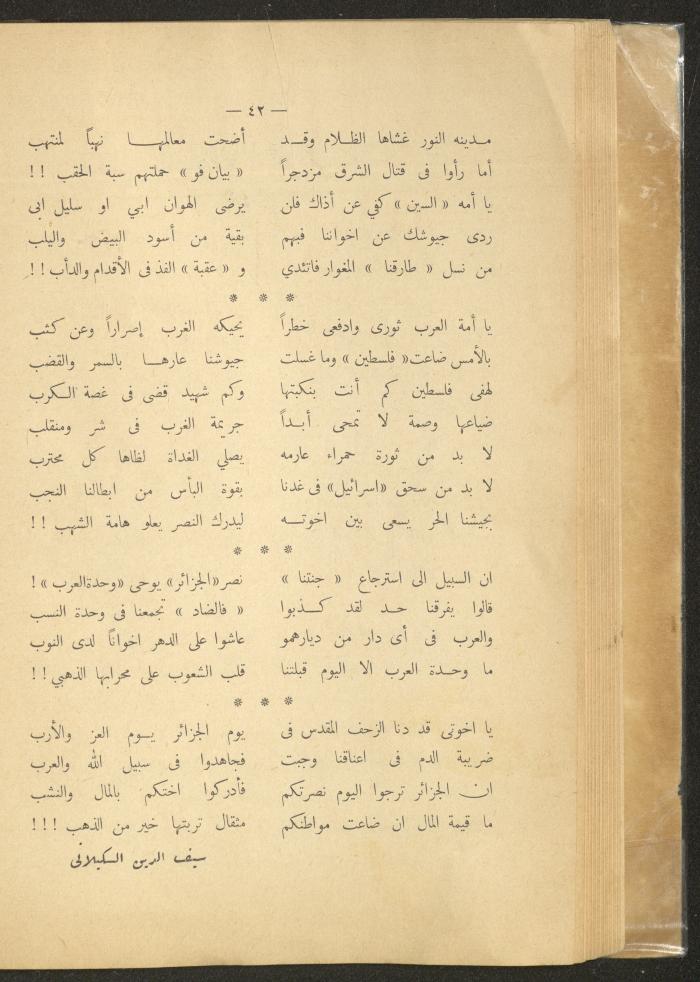 — ٤٢ —
مدينه النور غشاها الظلام وقد أضحت معالمها نهباً لمنتهب
أما رأوا فى قتال الشرق مزدجراً « بيان فو » حملتهم سبة الحقب !!
يا أمه « السين » كفي عن أذاك فلن يرضى الهوان ابي او سليل ابى
ردى جيوشك عن اخواننا فبهم بقية من أسود البيض واليلب
من نسل « طارقنا » المغوار فاتئدي و « عقبة » الفذ فى الأقدام والدأب !!
* * *
يا أمة العرب ثورى وادفعى خطراً يحيكه الغرب إصراراً وعن كثب
بالأمس ضاعت « فلسطين » وما غسلت جيوشنا عارها بالسمر والقضب
لهفى فلسطين كم أنت بنكبتها وكم شهيد قضى فى غصة الكرب
ضياعها وصمة لا تمحى أبداً جريمة الغرب فى شر ومنقلب
لا بد من ثورة حمراء عارمه يصلي الغداة لظاها كل محترب
لا بد من سحق «اسرائيل» فى غدنا بقوة البأس من ابطالنا النجب
بجيشنا الحر يسعى بين اخوته ليدرك النصر يعلو هامة الشهب !!
* * *
ان السبيل الى استرجاع « جنتنا » نصر «الجزائر» يوحى «وحدةالعرب» !
قالوا يفرقنا حد لقد كذبوا « فالضاد » تجمعنا فى وحدة النسب
والعرب فى أى دار من ديارهمو عاشوا على الدهر اخواناً لدى النوب
ما وحدة العرب الا اليوم قبلتنا قلب الشعوب على محرابها الذهبي !!
* * *
يا اخوتى قد دنا الزحف المقدس فى يوم الجزائر يوم العز والأرب
ضريبة الدم فى اعناقنا وجبت فجاهدوا فى سبيل الله والعرب
ان الجزائر ترجوا اليوم نصرتكم فأدركوا اختكم بالمال والنشب
ما قيمة المال ان ضاعت مواطنكم مثقال تربتها خير من الذهب !!!
سيف الدين الكيلانى